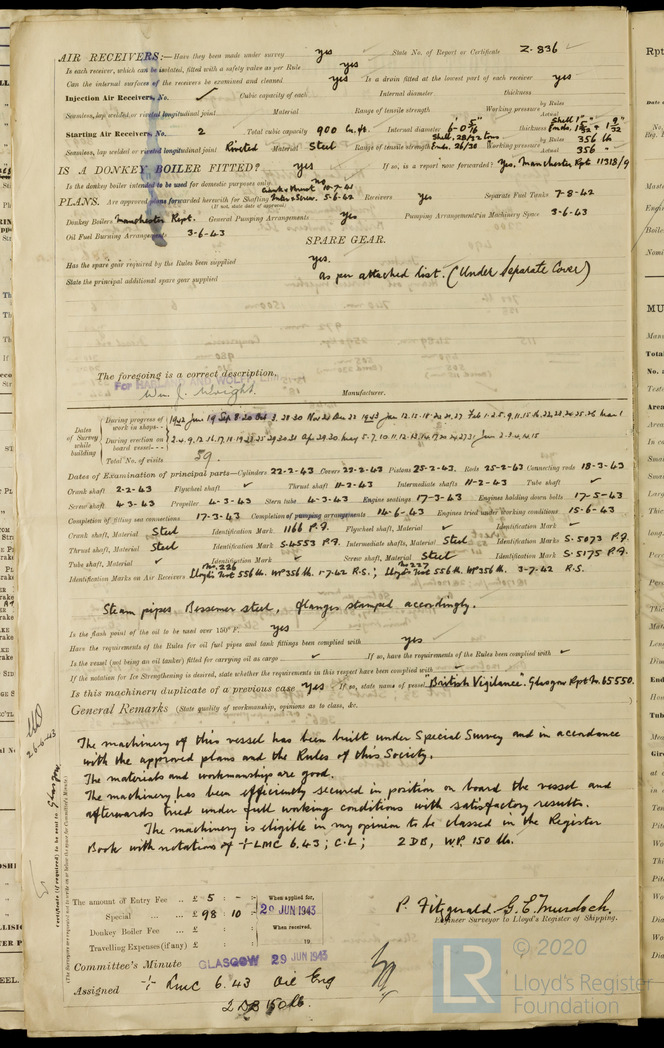 AIR RECEIVERS:—Have they been made under survey yes State No. of Report or Certificate Z-836
Is each receiver, which can be isolated, fitted with a safety valve as per Rule yes
Can the internal surfaces of the receivers be examined and cleaned yes Is a drain fitted at the lowest part of each receiver yes
Injection Air Receivers, No. ✓ Cubic capacity of each Internal diameter thickness
Seamless, lap welded or riveted longitudinal joint Material Range of tensile strength Working pressure by Rules Actual
Starting Air Receivers, No. 2 Total cubic capacity 900 cu. ft. Internal diameter thickness Shell Ends
Seamless, lap welded or riveted longitudinal joint Riveted Material Steel Range of tensile strength Shell. 28/32 tons Ends. 26/30 Working pressure by Rules 356 lb Actual 356 "
IS A DONKEY BOILER FITTED? yes If so, is a report now forwarded? Yes, Manchester Rpt 11318/9
Is the donkey boiler intended to be used for domestic purposes only no
PLANS. Are approved plans forwarded herewith for Shafting Crank & thrust 10-7-41 Inter & Screw. 5-6-42 Receivers yes Separate Fuel Tanks 7-8-42
(If not, state date of approval)
Donkey Boilers Manchester Rept. General Pumping Arrangements yes Pumping Arrangements in Machinery Space 3-6-43
Oil Fuel Burning Arrangements 3-6-43
SPARE GEAR.
Has the spare gear required by the Rules been supplied yes.
State the principal additional spare gear supplied as per attached list. (Under Separate Cover)
The foregoing is a correct description,
For HARLAND AND WOLFF
Wm. J. Wright Manufacturer.
Dates of Survey while building
During progress of work in shops--
During erection on board vessel---
Total No. of visits 59.
Dates of Examination of principal parts—Cylinders 22-2-43 Covers 22-2-43 Pistons 25-2-43. Rods 25-2-43 Connecting rods 18-3-43
Crank shaft 2-2-43 Flywheel shaft ✓ Thrust shaft 11-2-43 Intermediate shafts 11-2-43 Tube shaft ✓
Screw shaft 4-3-43 Propeller 4-3-43 Stern tube 4-3-43 Engine seatings 17-3-43 Engines holding down bolts 17-5-43
Completion of fitting sea connections 17-3-43 Completion of pumping arrangements 14-6-43 Engines tried under working conditions 15-6-43
Crank shaft, Material Steel Identification Mark 1166 P.F. Flywheel shaft, Material ✓ Identification Mark ✓
Thrust shaft, Material Steel Identification Mark S.4553 P.F. Intermediate shafts, Material Steel Identification Marks S.5073 P.F.
Tube shaft, Material ✓ Identification Mark ✓ Screw shaft, Material Steel Identification Mark S.5175 P.F.
Identification Marks on Air Receivers No. 226 Lloyds Test 556 lb. WP 356 lb. 1-7-42 R.S.; No 227 Lloyds Test 556 lb. WP 356 lb. 3-7-42 R.S.
Steam pipes Bessemer steel, flanges stamped accordingly.
Is the flash point of the oil to be used over 150° F. yes
Have the requirements of the Rules for oil fuel pipes and tank fittings been complied with yes
Is the vessel (not being an oil tanker) fitted for carrying oil as cargo ✓ If so, have the requirements of the Rules been complied with ✓
If the notation for Ice Strengthening is desired, state whether the requirements in this respect have been complied with ✓
Is this machinery duplicate of a previous case yes If so, state name of vessel "British Vigilance". Glasgow Rpt No. 65550.
General Remarks (State quality of workmanship, opinions as to class, &c.
The machinery of this vessel has been built under Special Survey and in accordance
with the approved plans and the Rules of this Society.
The materials and workmanship are good.
The machinery has been efficiently secured in position on board the vessel and
afterwards tried under full working conditions with satisfactory results.
The machinery is eligible in my opinion to be classed in the Register
Book with notations of + LMC 6.43; C.L; 2 DB, W.P. 150 lb.
The amount of Entry Fee .. £ 5 : - :
Special ... ... £ 98 : 10 :
Donkey Boiler Fee ... £ : :
Travelling Expenses (if any) £ : :
When applied for,
29 JUN 1943
When received,
19
P. Fitzgerald G. E. Murdoch.
Engineer Surveyor to Lloyd's Register of Shipping.
Committee's Minute GLASGOW 29 JUN 1943
Assigned + LMC 6.43 Oil Eng
2 DB 150 lb.
Glasgow
26-6-43
LR
© 2020
Lloyd's Register
Foundation